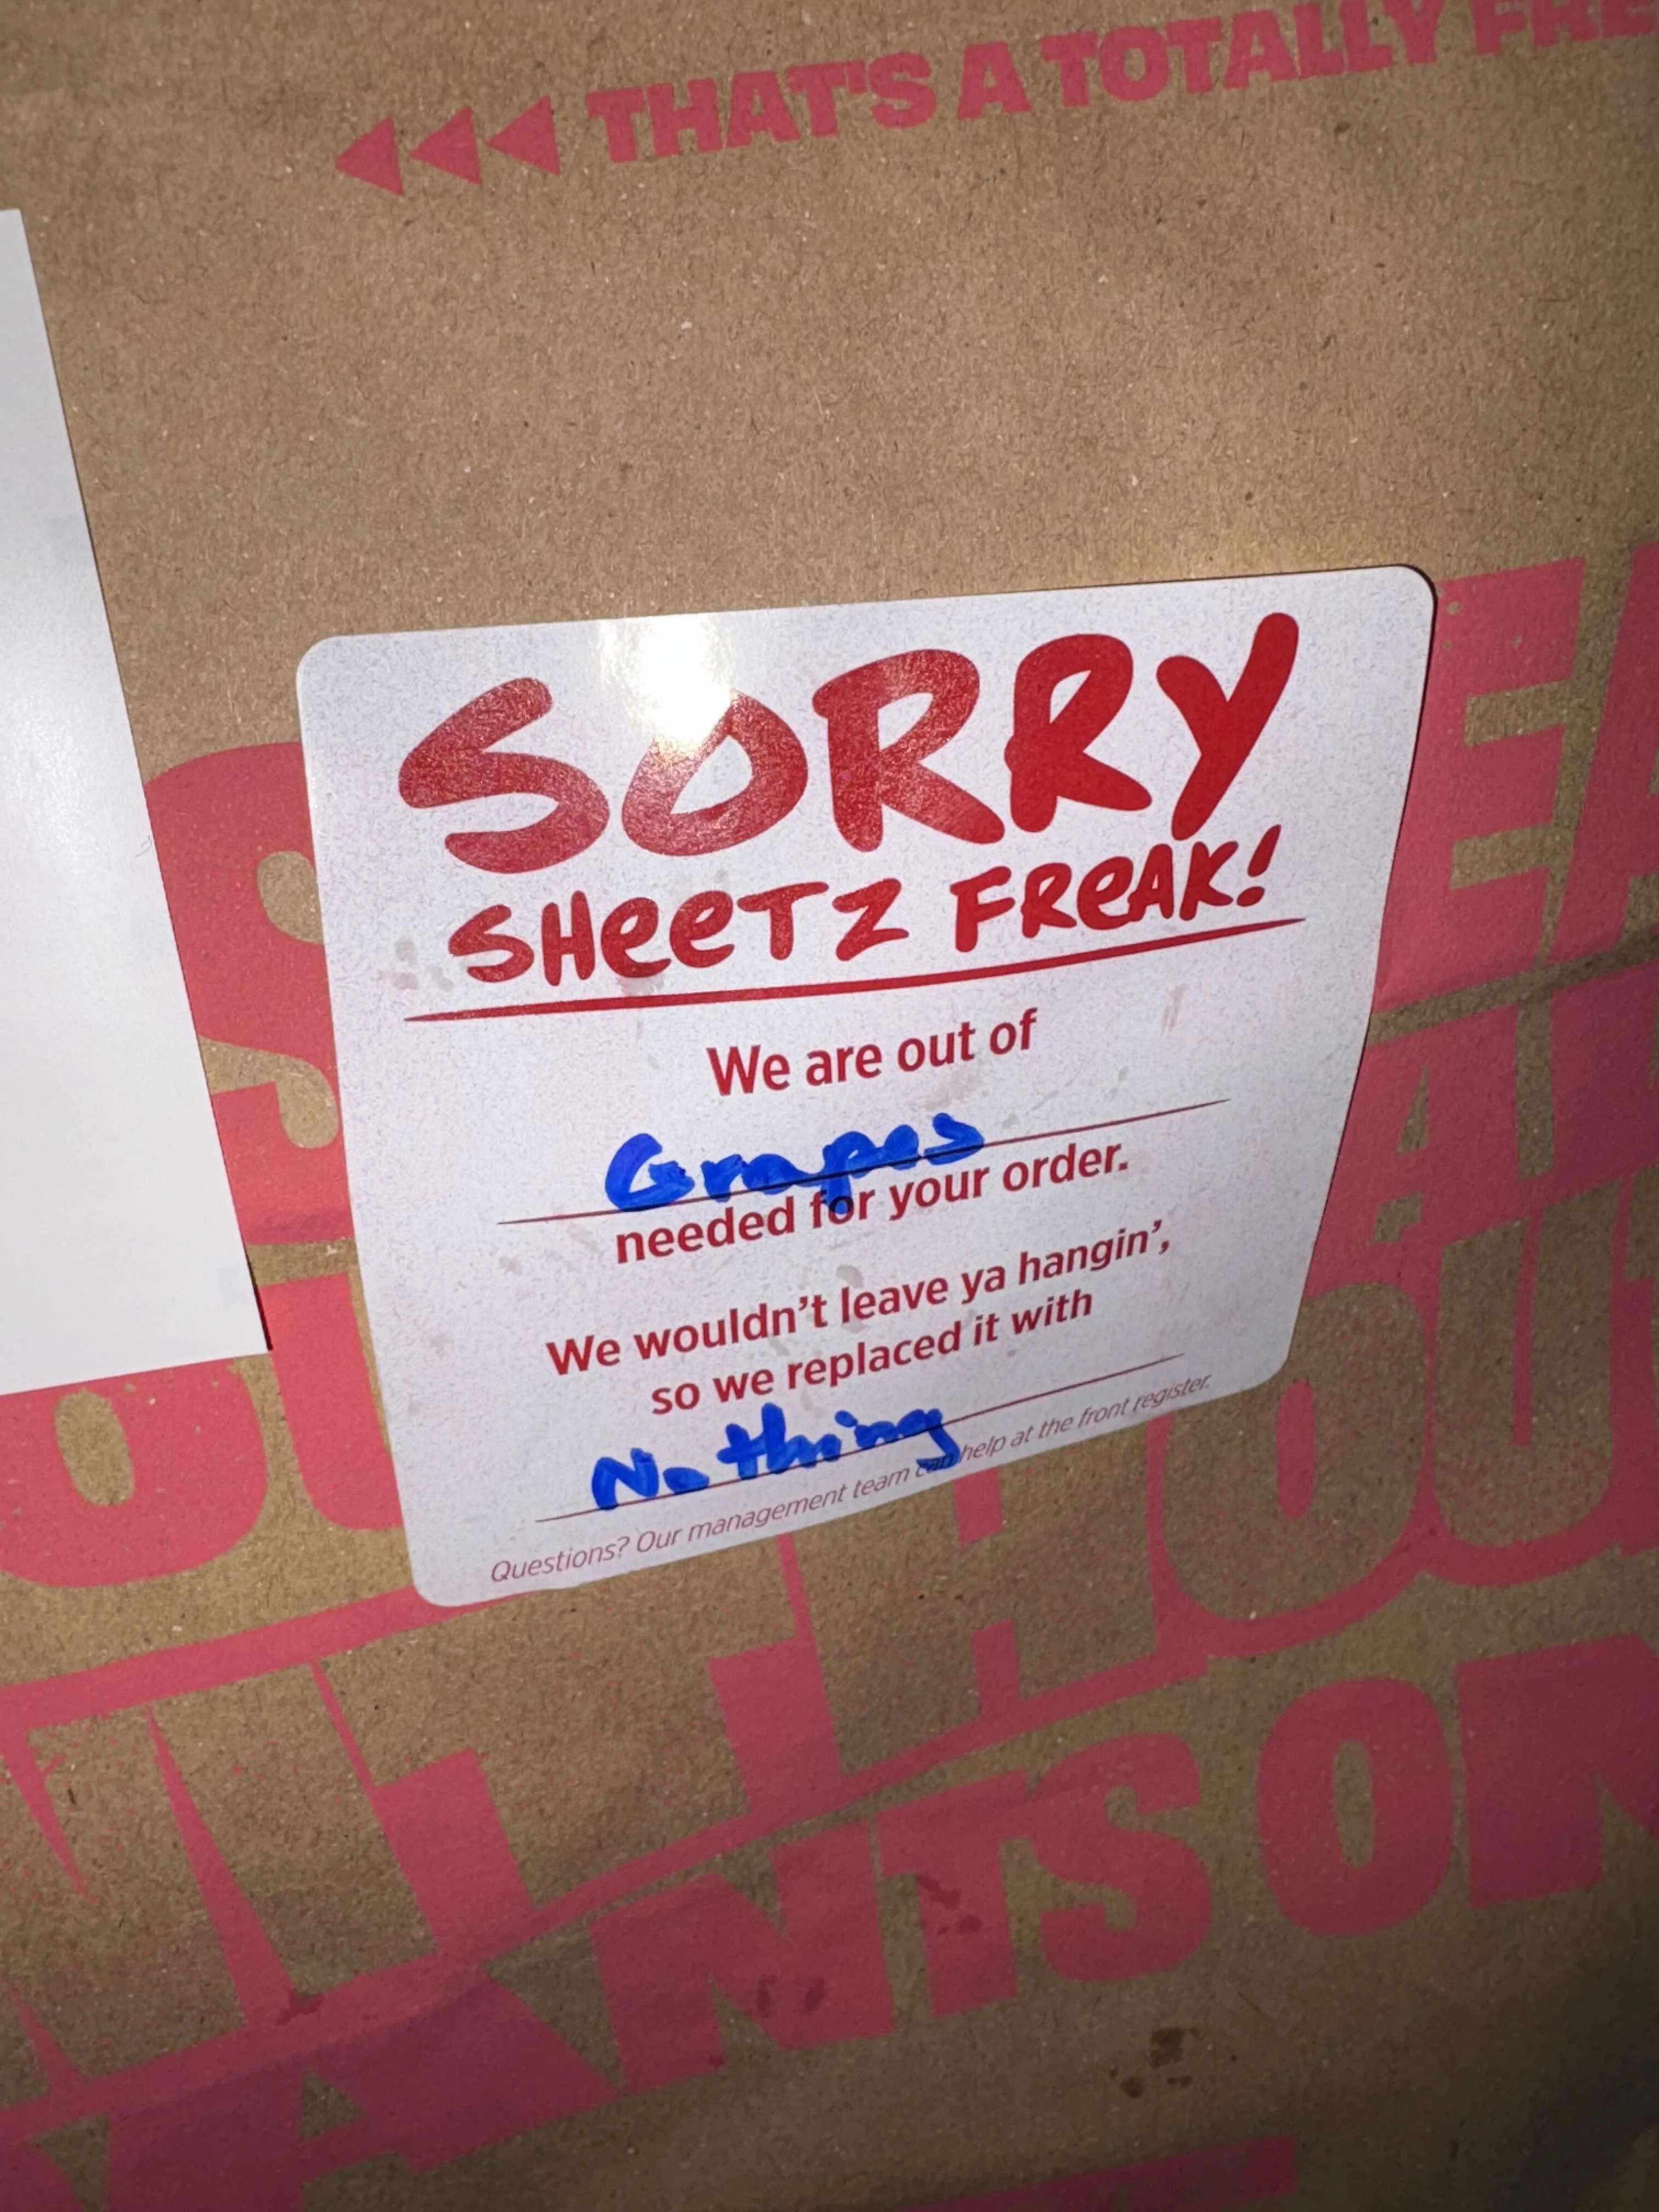 THAT'S A TOTALLY FRE
SORRY
SHEETZ FREAK!
We are out of
Grapes
needed for your order.
We wouldn't leave ya hangin',
so we replaced it with
Nothing
Questions? Our management team can help at the front register.
OU
ANTS ON